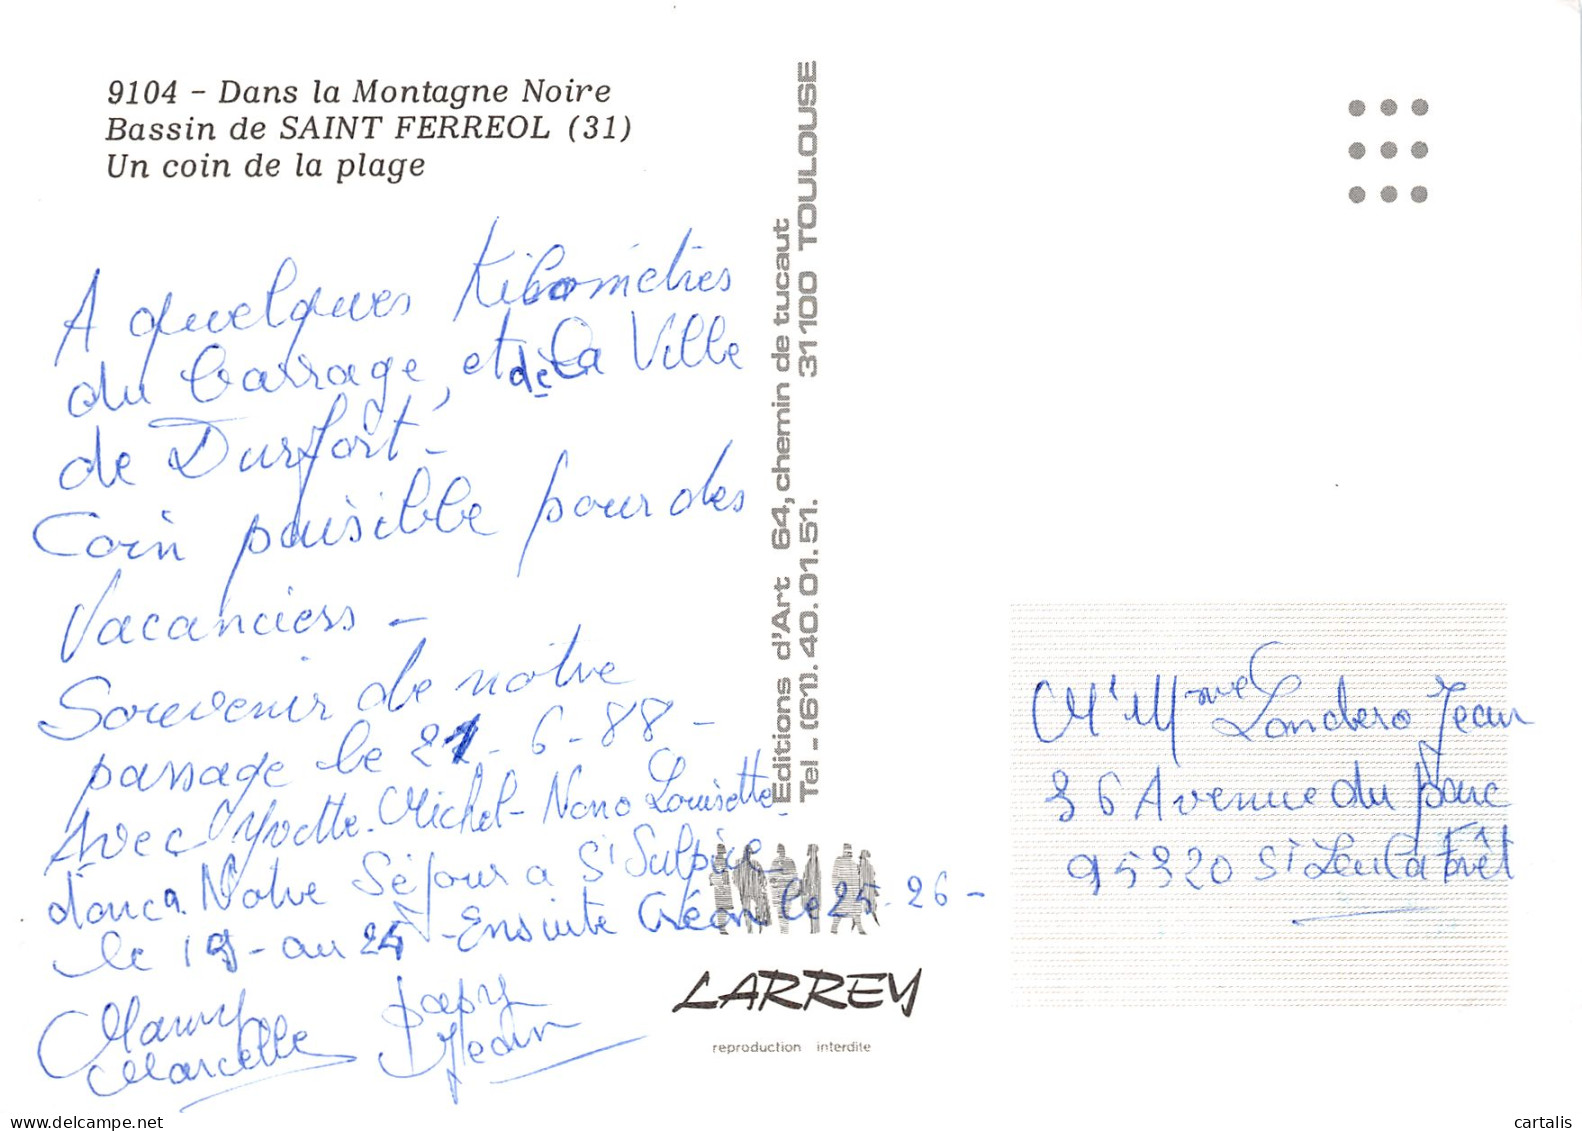 9104 - Dans la Montagne Noire
Bassin de SAINT FERREOL (31)
Un coin de la plage
A quelques Kilomètres
du barrage, et de la Ville
de Durfort -
Coin paisible pour des
Vacanciers -
Souvenir de notre
passage le 21-6-88-
Avec Yvette-Michel-Nano Louisette-
Notre Séjour a St Sulpice
le 19-au 25-Ensuite le 25-26-
Mamy Papy
Marcelle Jean
Editions d'Art 64, chemin de tucaut
Tel - (61). 40.01.51. 31100 TOULOUSE
LARREY
reproduction interdite
Mr Mme Landero Jean
36 Avenue du parc
95320 St Leu la Forêt
cartalis